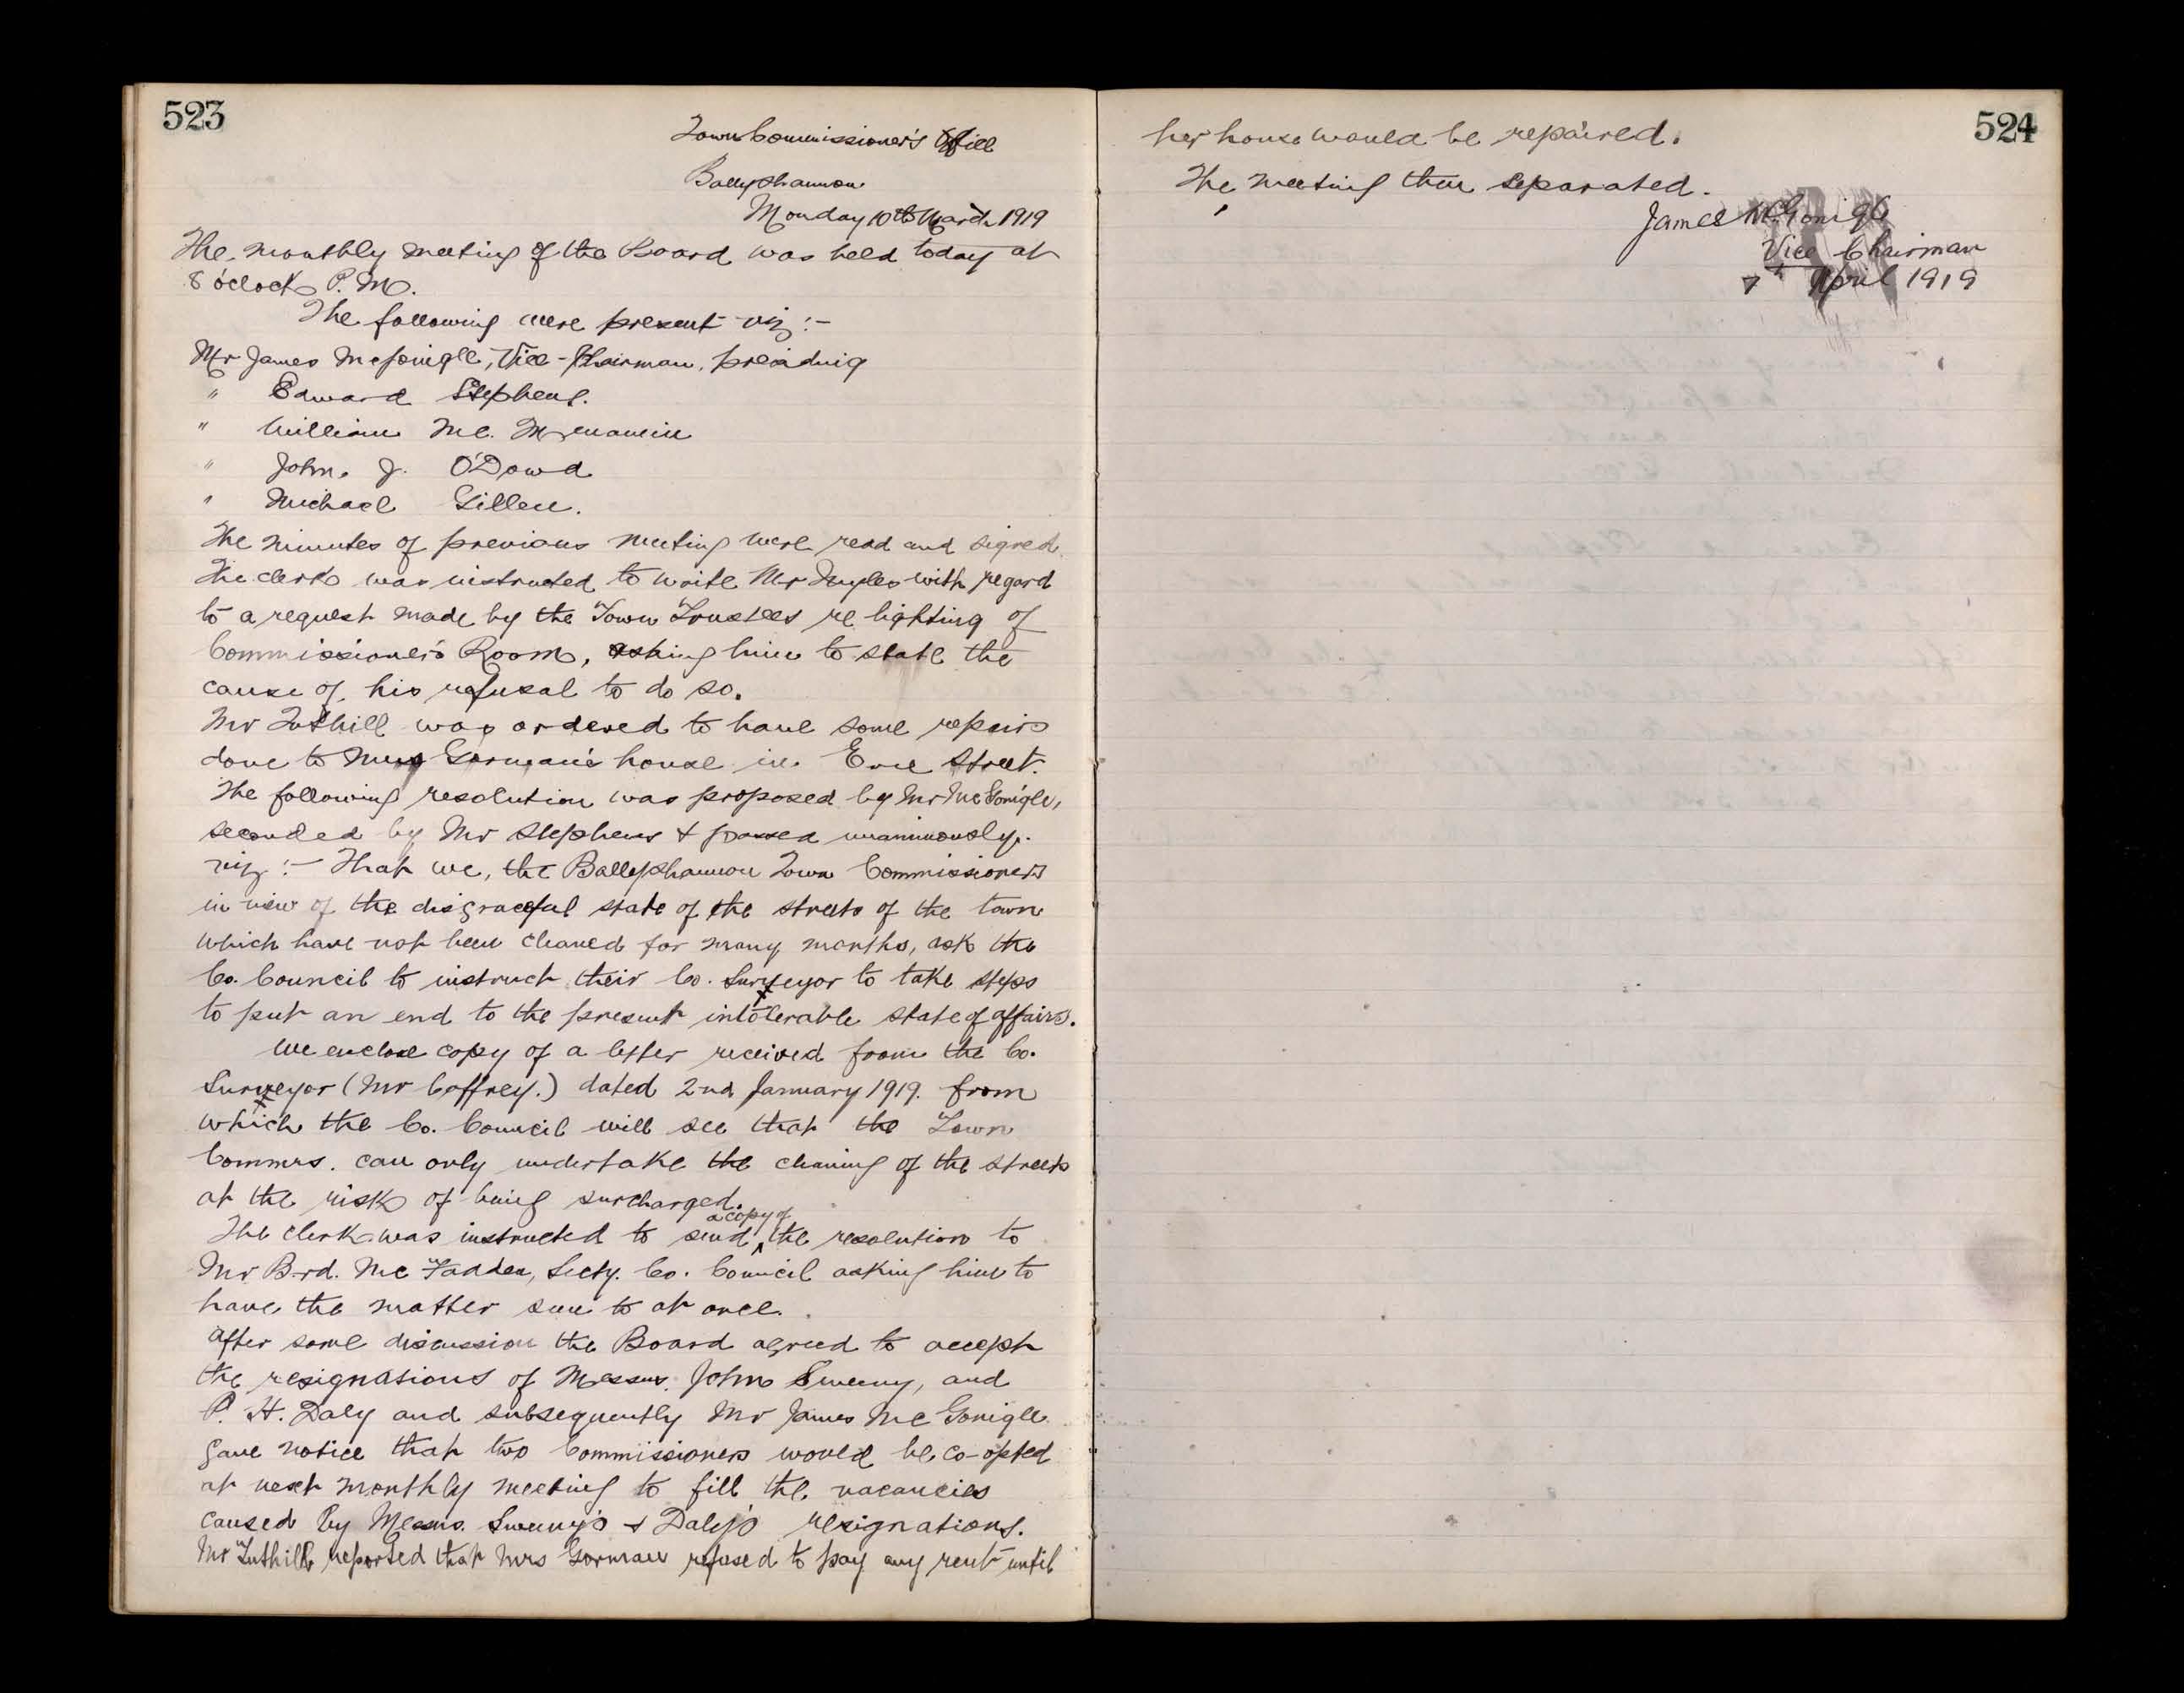 523
Town Commissioner's Office
Ballyshannon
Monday 10th March 1919
The monthly meeting of the Board was held today at
8 o'clock P.M.
The following were present viz:-
Mr James McGonigle, Vice-Chairman, presiding
" Edward Stephens.
" William Mc. Menamin
" John. J. O'Dowd
" Michael Gillen.
The minutes of previous meeting were read and signed.
The clerk was instructed to write Mr with regard
to a request made by the Town Trustees re lighting of
Commissioner's Room, asking him to state the
cause of his refusal to do so.
Mr Tuthill was ordered to have some repairs
done to Mrs Gorman's house in Erne Street.
The following resolution was proposed by Mr McGonigle,
seconded by Mr Stephens & passed unanimously.
viz:- That we, the Ballyshannon Town Commissioners
in view of the disgraceful state of the streets of the town
which have not been cleaned for many months, ask the
Co. Council to instruct their Co. Surveyor to take steps
to put an end to the present intolerable state of affairs.
We enclose copy of a letter received from the Co.
Surveyor (Mr Caffrey.) dated 2nd January 1919. from
which the Co. Council will see that the Town
Commrs. can only undertake the cleaning of the streets
at the risk of being surcharged.
The clerk was instructed to send a copy of the resolution to
Mr B-rd. Mc Fadden, Secty. Co. Council asking him to
have the matter seen to at once.
After some discussion the Board agreed to accept
the resignations of Messrs. John Sweeny, and
P. H. Daly and subsequently Mr James McGonigle
gave notice that two Commissioners would be co-opted
at next monthly meeting to fill the vacancies
caused by Messrs. Sweeny's & Daly's resignations.
Mr Tuthill reported that Mrs Gorman refused to pay any rent until
524
her house would be repaired.
The meeting then separated.
James McGonigle
Vice Chairman
7th April 1919